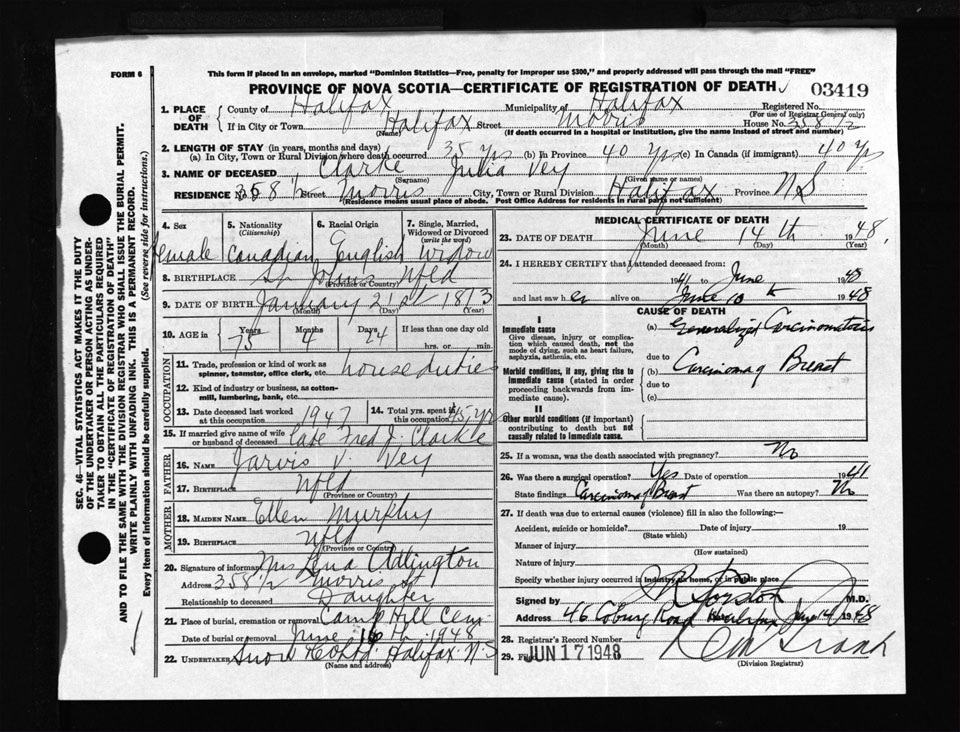 FORM 6
This form if placed in an envelope, marked "Dominion Statistics—Free, penalty for improper use $300," and properly addressed will pass through the mail "FREE"
PROVINCE OF NOVA SCOTIA—CERTIFICATE OF REGISTRATION OF DEATH
03419
1. PLACE OF DEATH
County of Halifax Municipality of Halifax Registered No.
(For use of Registrar General only)
If in City or Town Halifax Street Morris House No. 358 1/2
(Name) (If death occurred in a hospital or institution, give the name instead of street and number)
2. LENGTH OF STAY (in years, months and days)
(a) In City, Town or Rural Division where death occurred 35 yrs (b) In Province 40 Yrs (c) In Canada (if immigrant) 40 Yrs
3. NAME OF DECEASED Clarke Julia Vey
(Surname) (Given name or names)
RESIDENCE No. 358 1/2 Street Morris City, Town or Rural Division Halifax Province N S
(Residence means usual place of abode. Post Office Address for residents in rural parts not sufficient)
4. Sex 5. Nationality (Citizenship) 6. Racial Origin 7. Single, Married, Widowed or Divorced (write the word)
Female Canadian English Widow
8. BIRTHPLACE St Johns Nfld
(Province or Country)
9. DATE OF BIRTH January 21st 1873
(Month) (Day) (Year)
10. AGE in Years Months Days If less than one day old
75 4 24 hrs. or min.
OCCUPATION
11. Trade, profession or kind of work as spinner, teamster, office clerk, etc. house duties
12. Kind of industry or business, as cotton-mill, lumbering, bank, etc.
13. Date deceased last worked at this occupation 1947
14. Total yrs. spent in this occupation 45 yrs
15. If married give name of wife or husband of deceased Late Fred J. Clarke
FATHER
16. NAME Jarvis V. Vey
17. BIRTHPLACE Nfld
(Province or Country)
MOTHER
18. MAIDEN NAME Ellen Murphy
19. BIRTHPLACE Nfld
(Province or Country)
20. Signature of informant Mrs Lena Adlington
Address 358 1/2 Morris St
Relationship to deceased Daughter
21. Place of burial, cremation or removal Camp Hill Cem
Date of burial or removal June 16th 1948
22. UNDERTAKER Snow & Co Ltd. Halifax N.S
(Name and address)
MEDICAL CERTIFICATE OF DEATH
23. DATE OF DEATH June 14th 1948.
(Month) (Day) (Year)
24. I HEREBY CERTIFY that I attended deceased from
1941 to June 1948
and last saw her alive on June 10th 1948
CAUSE OF DEATH
I
Immediate cause
Give disease, injury or complication which caused death, not the mode of dying, such as heart failure, asphyxia, asthenia, etc.
(a) Generalized Carcinomatosis
due to
Morbid conditions, if any, giving rise to immediate cause (stated in order proceeding backwards from immediate cause).
(b) Carcinoma of Breast
due to
(c)
II
Other morbid conditions (if important) contributing to death but not causally related to immediate cause.
25. If a woman, was the death associated with pregnancy? No
26. Was there a surgical operation? Yes Date of operation 1941
State findings Carcinoma of Breast Was there an autopsy? No
27. If death was due to external causes (violence) fill in also the following:—
Accident, suicide or homicide? Date of injury 19
(State which)
Manner of injury
(How sustained)
Nature of injury
Specify whether injury occurred in industry, in home, or in public place
Signed by M.D.
Address 46 Coburg Road Halifax June 14 1948
28. Registrar's Record Number
29. Filed JUN 17 1948
(Division Registrar)
SEC. 46—VITAL STATISTICS ACT MAKES IT THE DUTY OF THE UNDERTAKER OR PERSON ACTING AS UNDERTAKER TO OBTAIN ALL THE PARTICULARS REQUIRED IN THE "CERTIFICATE OF REGISTRATION OF DEATH" AND TO FILE THE SAME WITH THE DIVISION REGISTRAR WHO SHALL ISSUE THE BURIAL PERMIT.
WRITE PLAINLY WITH UNFADING INK. THIS IS A PERMANENT RECORD.
Every item of information should be carefully supplied. (See reverse side for instructions.)